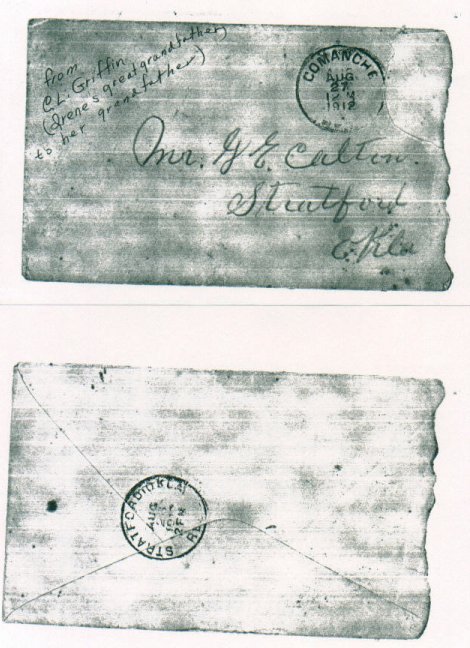 from
C.L. Griffin
(Irene's great grandfather)
to her grandfather)
COMANCHE
AUG
27
1912
Mr. G E. Calton.
Stratford
Okla
STRATFORD OKLA
AUG